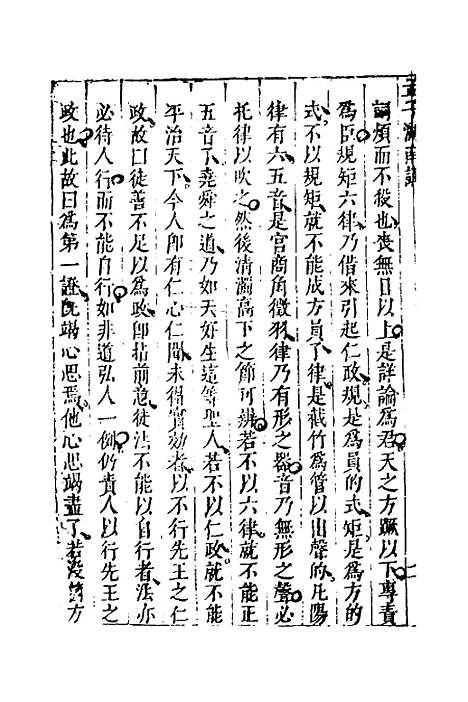 孟子湖南講
詞煩而不殺也喪無日以上是詳論為君天之方蹶以下專責
為臣規矩六律乃借來引起仁政規是為員的式矩是為方的
式不以規矩就不能成方員了律是截竹為管以出聲的凡陽
律有六五音是宮商角徵羽律乃有形之器音乃無形之聲必
托律以吹之然後清濁高下之節可辨若不以六律就不能正
五音了堯舜之道乃如天好生這等聖人若不以仁政就不能
平治天下今人即有仁心仁聞未得實効者以不行先王之仁
政故曰徒善不足以為政即指前意徒法不能以自行者法亦
必待人行而不能自行如非道弘人一例仍責人以行先王之
政也此故曰為第一證既竭心思焉他心思竭盡了若沒箇方